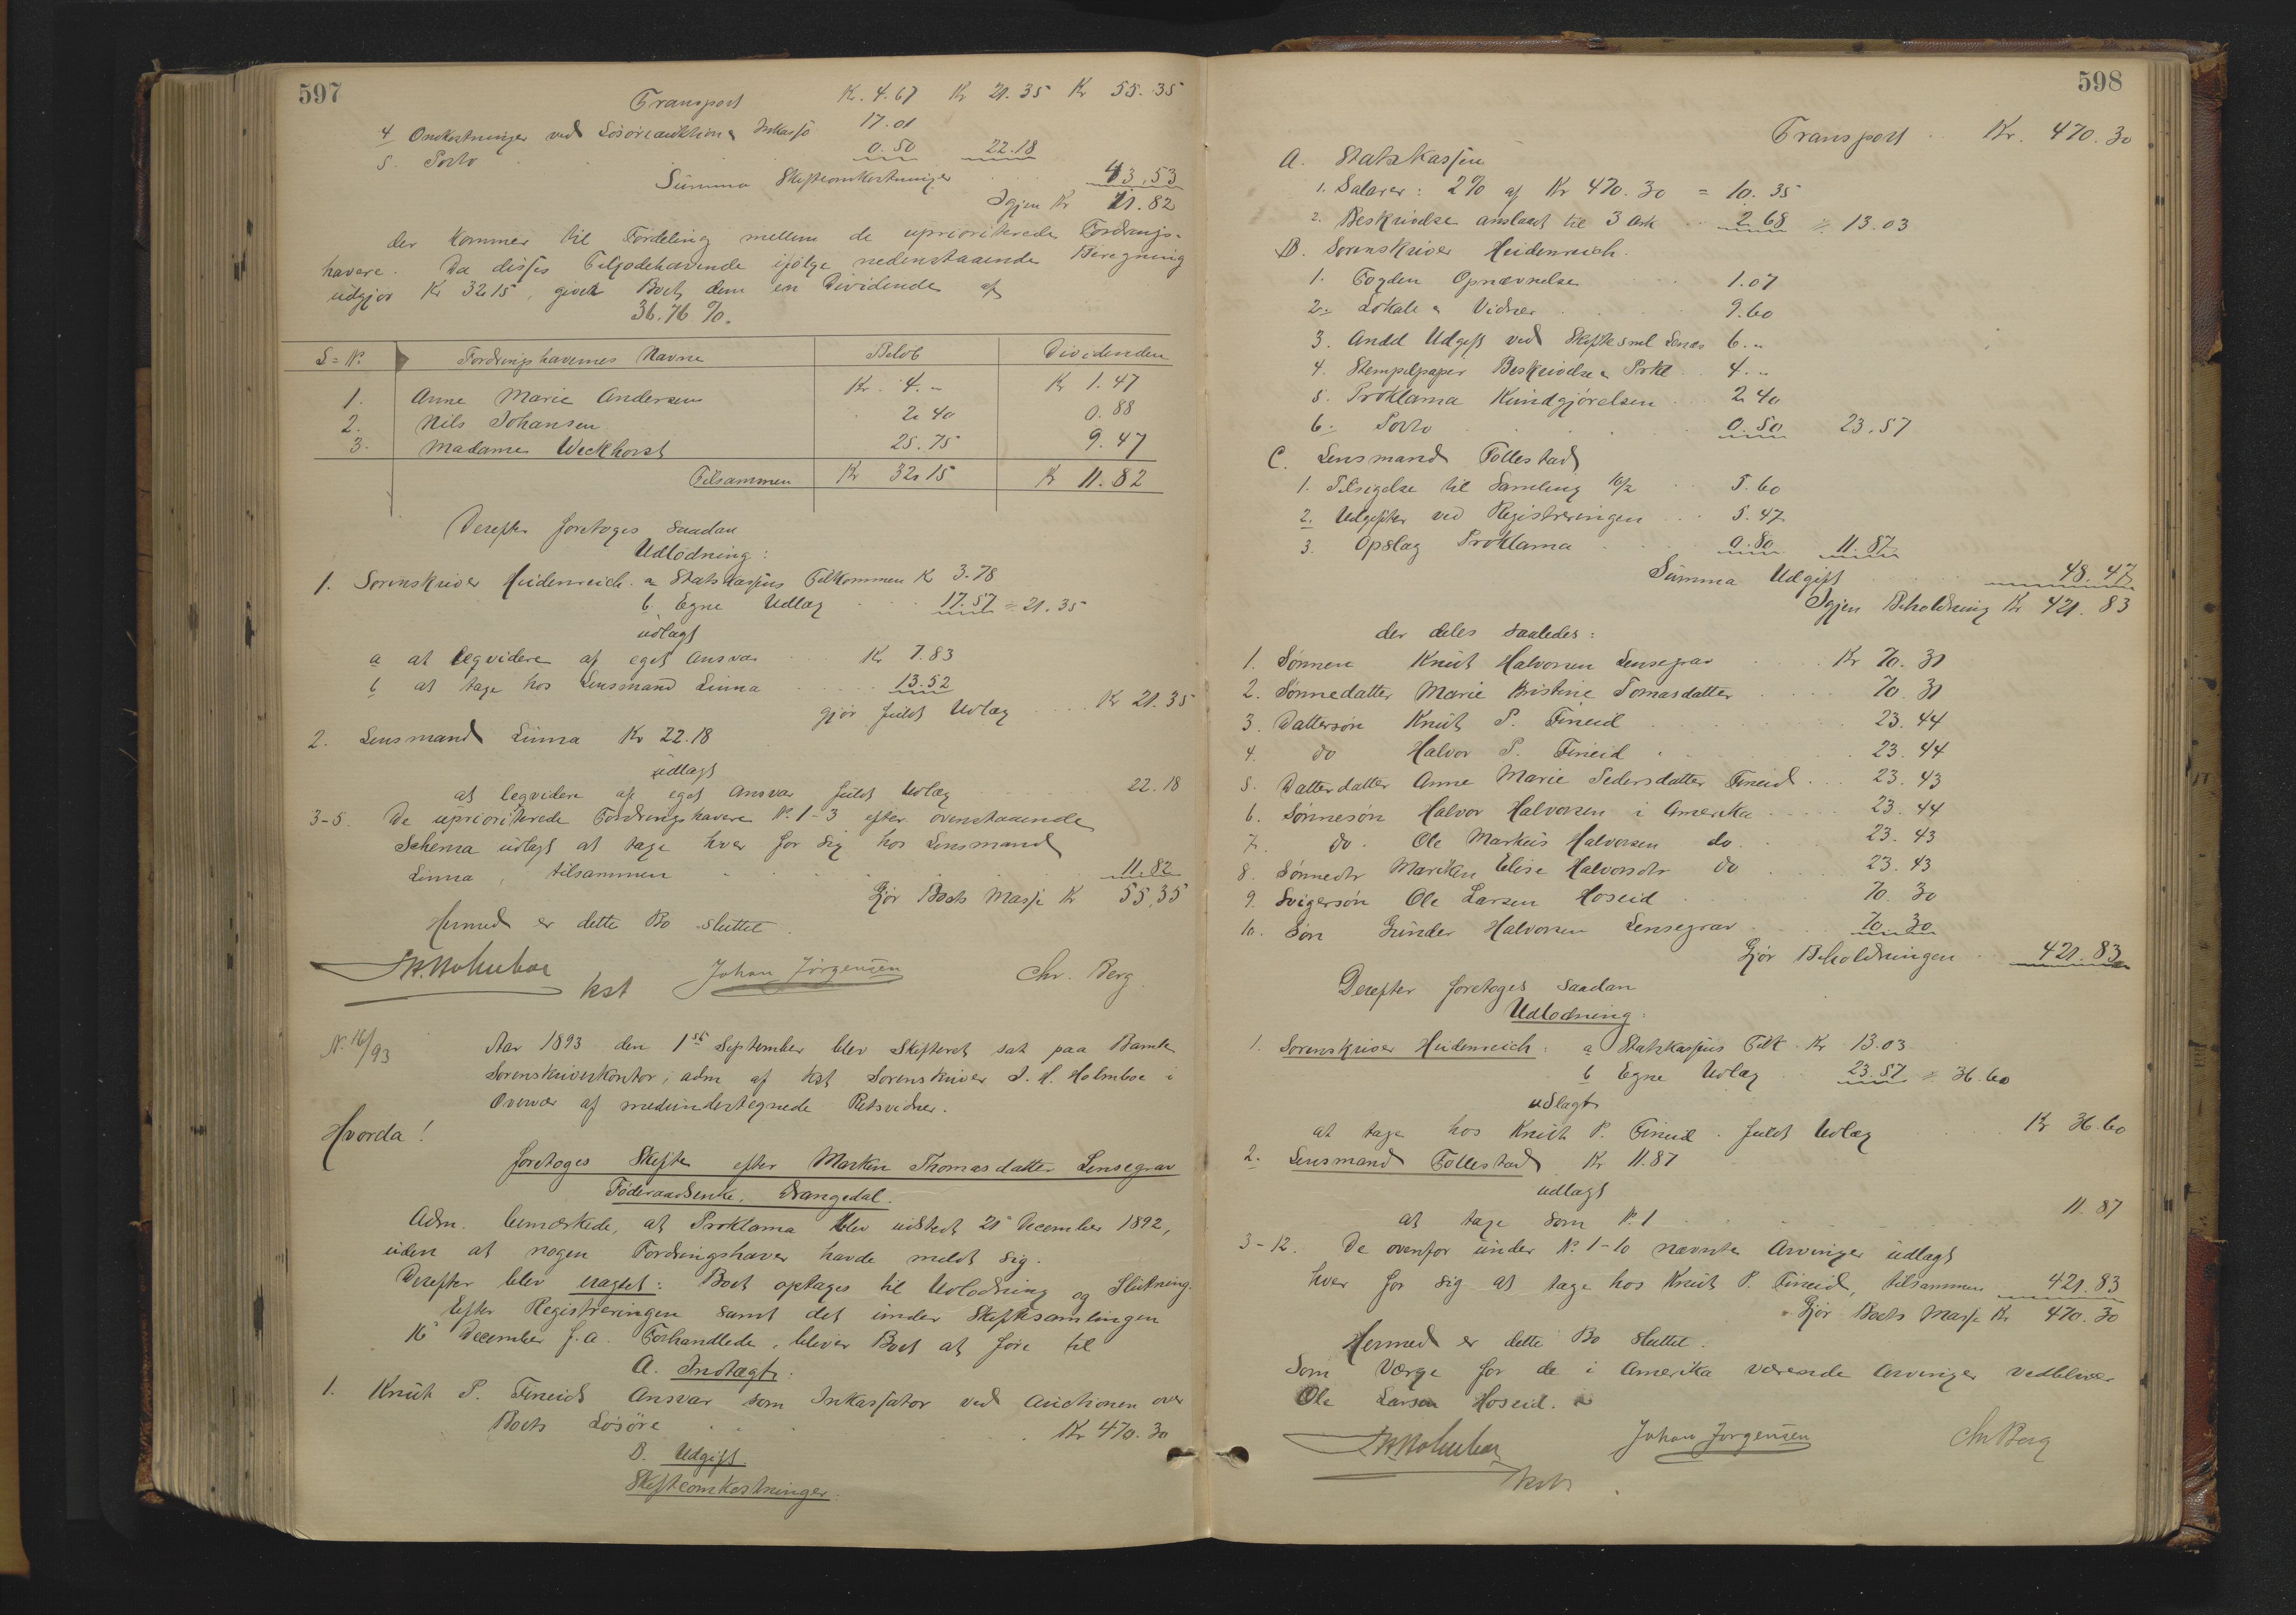 597
Transport Kr. 4.67 Kr 21.35 Kr 55.35
4 Omkostninger ved Løsøreauktion & Inkasso 17.01
5. Porto 0.50 22.18
Summa Skifteomkostninger 43,53
Igjen Kr 11.82
der kommer til Fordeling mellem de uprioriterede Fordrings-
havere. Da disses Tilgodehavende ifølge nedenstaaende Beregning
udgjør Kr 32.15, giver Boet dem en Dividende af
36.76 %.
L=No Fordringshavernes Navne Beløb Dividenden
1. Anne Marie Andersen Kr. 4.- Kr 1.47
2. Nils Johansen 2.40 0.88
3. Madame Weckhorst 25.75 9.47
Tilsammen Kr 32.15 Kr 11.82
Derefter foretoges saadan
Udlodning:
1. Sorenskriver Heidenreich. a Statskassens Tilkommen K 3.78
b Egne Udlæg 17.57 = 21.35
udlagt
a at liqvidere af eget Ansvar Kr 7.83
b at tage hos Lensmand Linna 13.52
gjør fuldt Udlæg Kr 21.35
2. Lensmand Linna Kr 22.18
udlagt
at leqvidere af eget Ansvar fuldt Udlæg 22.18
3-5. De uprioriterede Fordringshavere No 1-3 efter ovenstaaende
Schema udlagt at tage hver for sig hos Lensmand
Linna, tilsammen 11.82
Gjør Boets Masse Kr 55,35
Hermed er dette Bo sluttet.
J. H. Holmboe kst Johan Jørgensen Chr. Berg
N. 16/93 Aar 1893 den 1ste September blev Skifteret sat paa Bamle
Sorenskriverkontor, adm af kst Sorenskriver J. H. Holmboe i
Overvær af medundertegnede Retsvidner.
Hvorda!
foretoges Skifte efter Marken Thomasdatter Lensegrav
Føderaadsenke. Drangedal.
Adm. bemærkede, at Proklama blev udstedt 21 December 1892,
uden at nogen Fordringshaver havde meldt sig.
Derefter blev eragtet: Boet optages til Udlodning og Slutning.
Efter Registreringen samt det under Skiftesamlingen
16 December f.a. Forhandlede, bliver Boet at føre til
A. Indtægt:
1. Knut P. Fineids Ansvar som Inkassator ved Auctionen over
Boets Løsøre Kr 470.30
B. Udgift
Skifteomkostninger:
598
Transport Kr. 470.30
A. Statskassen
1. Salarer: 2% af Kr 470.30 = 10.35
2. Beskrivelse anslaaet til 3 Ark 2.68 = 13.03
B. Sorenskriver Heidenreich.
1. Fogden Opnævnelse 1.07
2. Lokale & Vidner 9.60
3. Andel Udgift ved Skiftesml Lenas 6.-
4. Stempelpapir Beskrivelse & Prkl 4.-
5. Proklama Kundgjørelsen 2.40
6. Porto 0.50 23.57
C. Lensmand Tollestad
1. Tilsigelse til Samling 16/12 5.60
2. Udgifter ved Registreringen 5.47
3. Opslag Proklama 0.80 11.87
Summa Udgift 48.47
Igjen Beholdning Kr 421.83
der deles saaledes:
1. Sønnen Knut Halvorsen Lensegrav Kr 70.31
2. Sønnedatter Marie Kristine Tomasdatter 70.31
3. Dattersøn Knut P. Fineid 23.44
4. do Halvor P. Fineid 23.44
5. Datterdatter Anne Marie Pedersdatter Fineid 23.43
6. Sønnesøn Halvor Halvorsen i Amerika 23.44
7. do. Ole Markus Halvorsen do. 23.43
8. Sønnedtr Mariken Elise Halvorsdtr do 23.43
9. Svigersøn Ole Larsen Hoseid 70.30
10. Søn Gunder Halvorsen Lensegrav 70.30
Gjør Beholdningen 421.83
Derefter foretoges saadan
Udlodning:
1. Sorenskriver Heidenreich: a Statskassens Tilk. Kr 13.03
b Egne Udlæg 23.57 = 36.60
udlagt
at tage hos Knut P. Fineid. fuldt Udlæg Kr 36.60
2. Lensmand Tollestad Kr 11.87
udlagt
at tage som No 1 11.87
3-12. De ovenfor under No 1-10 nævnte Arvinger udlagt
hver for sig at tage hos Knut P. Fineid, tilsammen 421.83
Gjør Boets Masse Kr 470.30
Hermed er dette Bo sluttet.
Som Værge for de i Amerika værende Arvinger vedbliver
Ole Larsen Hoseid.
J. H. Holmboe kst Johan Jørgensen Chr Berg